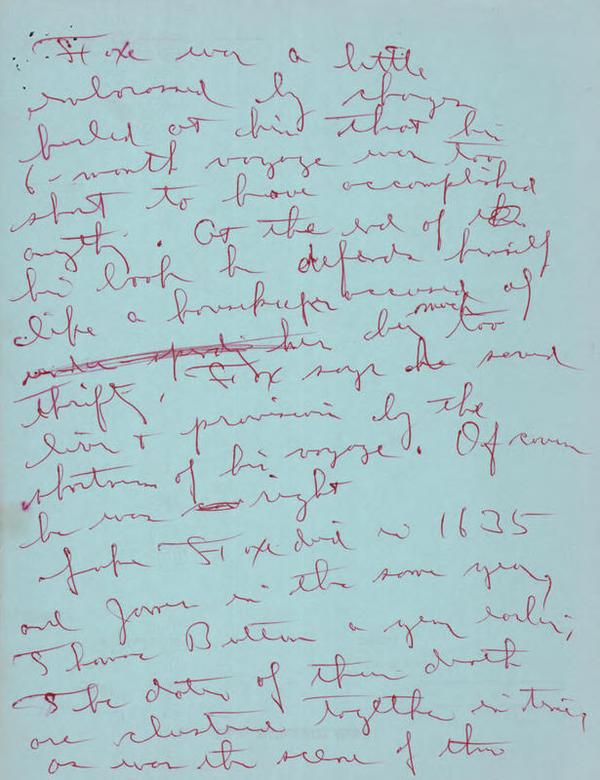 Foxe was a little
embarrassed by charges
hurled at him that his
6-month voyage was too
short to have accomplished
anythg. At the end of
his book he defends himself
like a housekeeper accused of
her being much too
thrifty, Fox says he saved
lives + provisions by the
shortness of his voyage. Of course
he was right
Luke Foxe died in 1635
and James in the same year,
Thomas Button a year earlier;
The dates of their death
are clustered together in time,
as was the scene of their